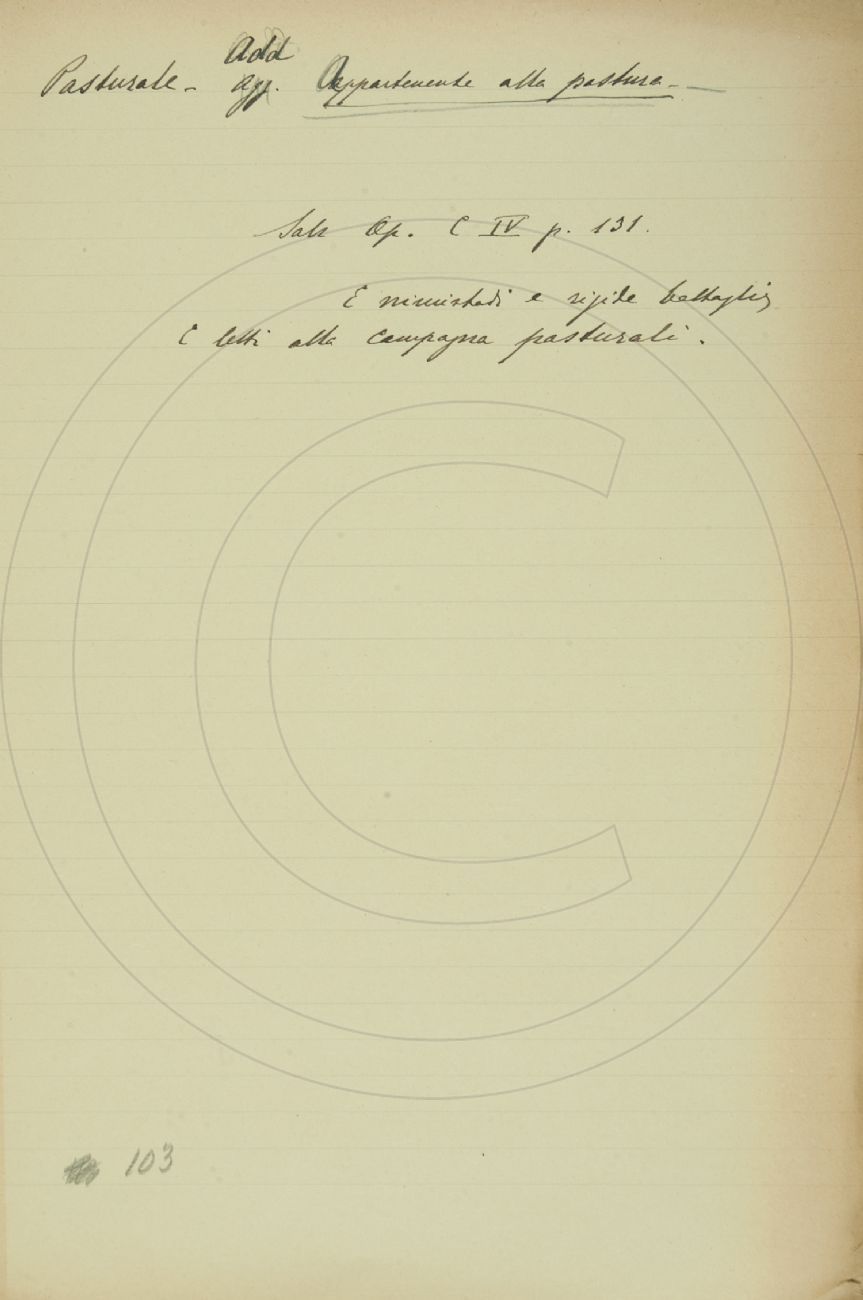 Add
Pasturale - agg. Appartenente alla pastura. -
Salv Op. C IV p. 131.
E nimistadi e rigide battaglie
E letti alla campagna pasturali.
103